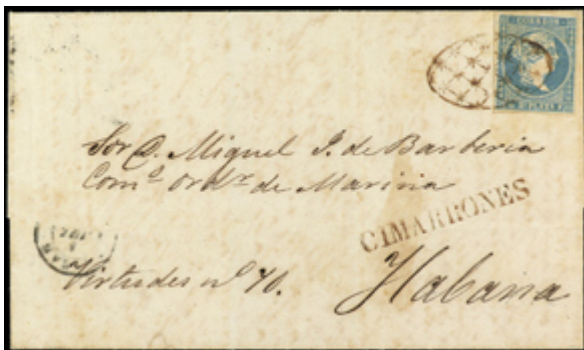 CORREOS
Sor D. Miguel J. de Barberia
Com.o Ord.r de Marina
CIMARRONES
Virtudes no 76.
Habana